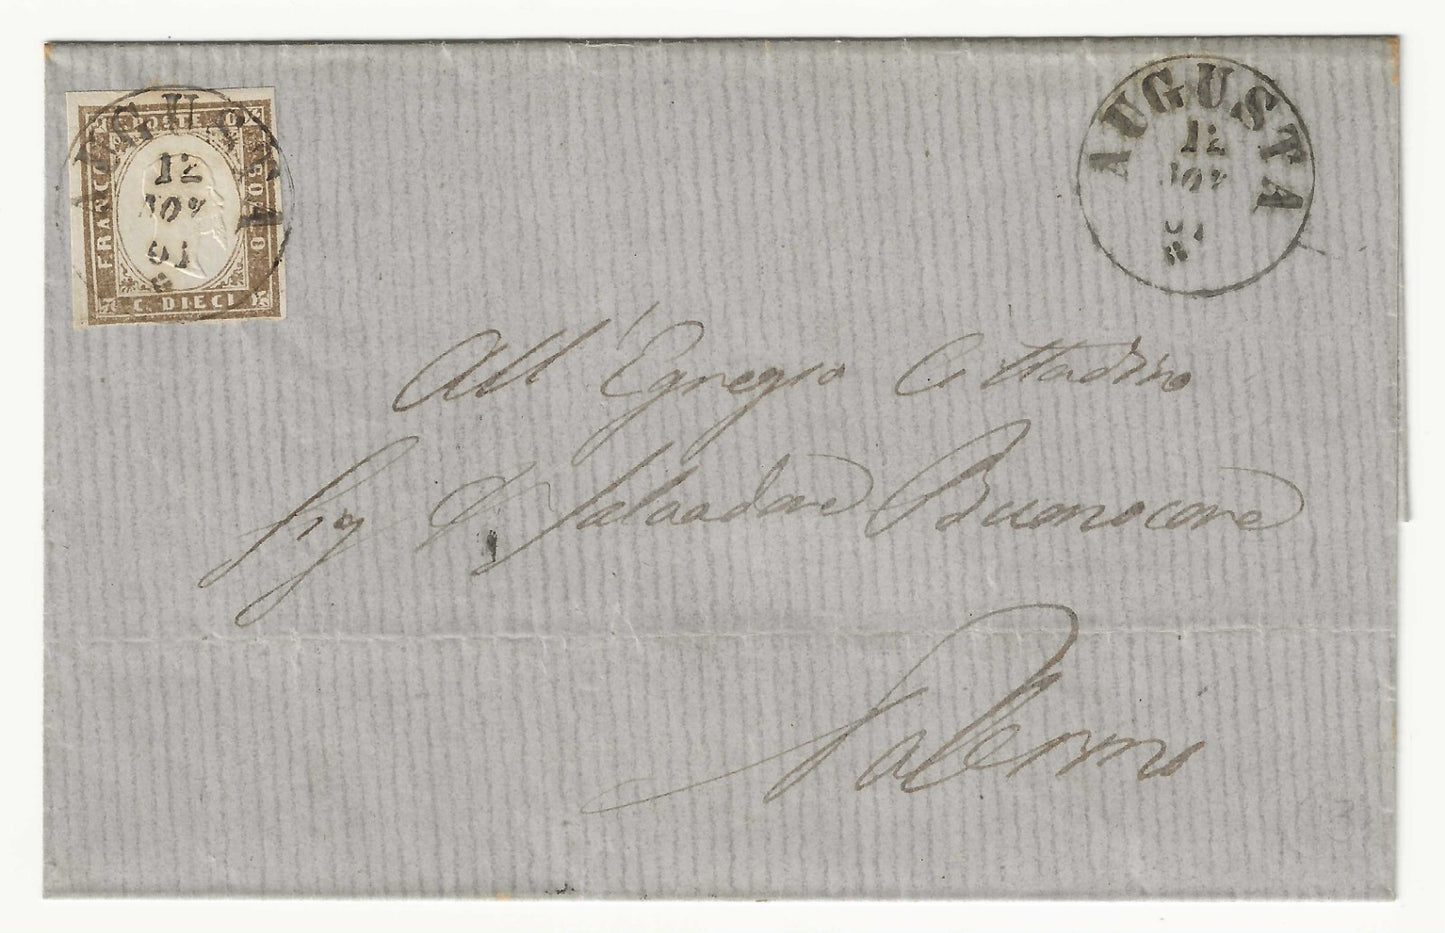 AUGUSTA
12
NOV
61
POSTE
FRANCO
BOLLO
C. DIECI
AUGUSTA
12
NOV
61
All'Egregio Cittadino
Sig D Salvadore Buonocore
Palermo
3